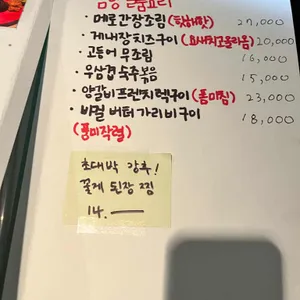 · 메로간장조림 (핫해핫) 27,000
· 게내장치즈구이 (요새최고올라옴) 10,000
· 고등어 무조림 16,000
· 우삼겹 숙주볶음 15,000
· 양갈비프렌치렉구이 (폼미침) 23,000
· 버컬 버터 가리비구이 18,000
(풍미작렬)
초대박 강추!
꽃게 된장찜
14.—